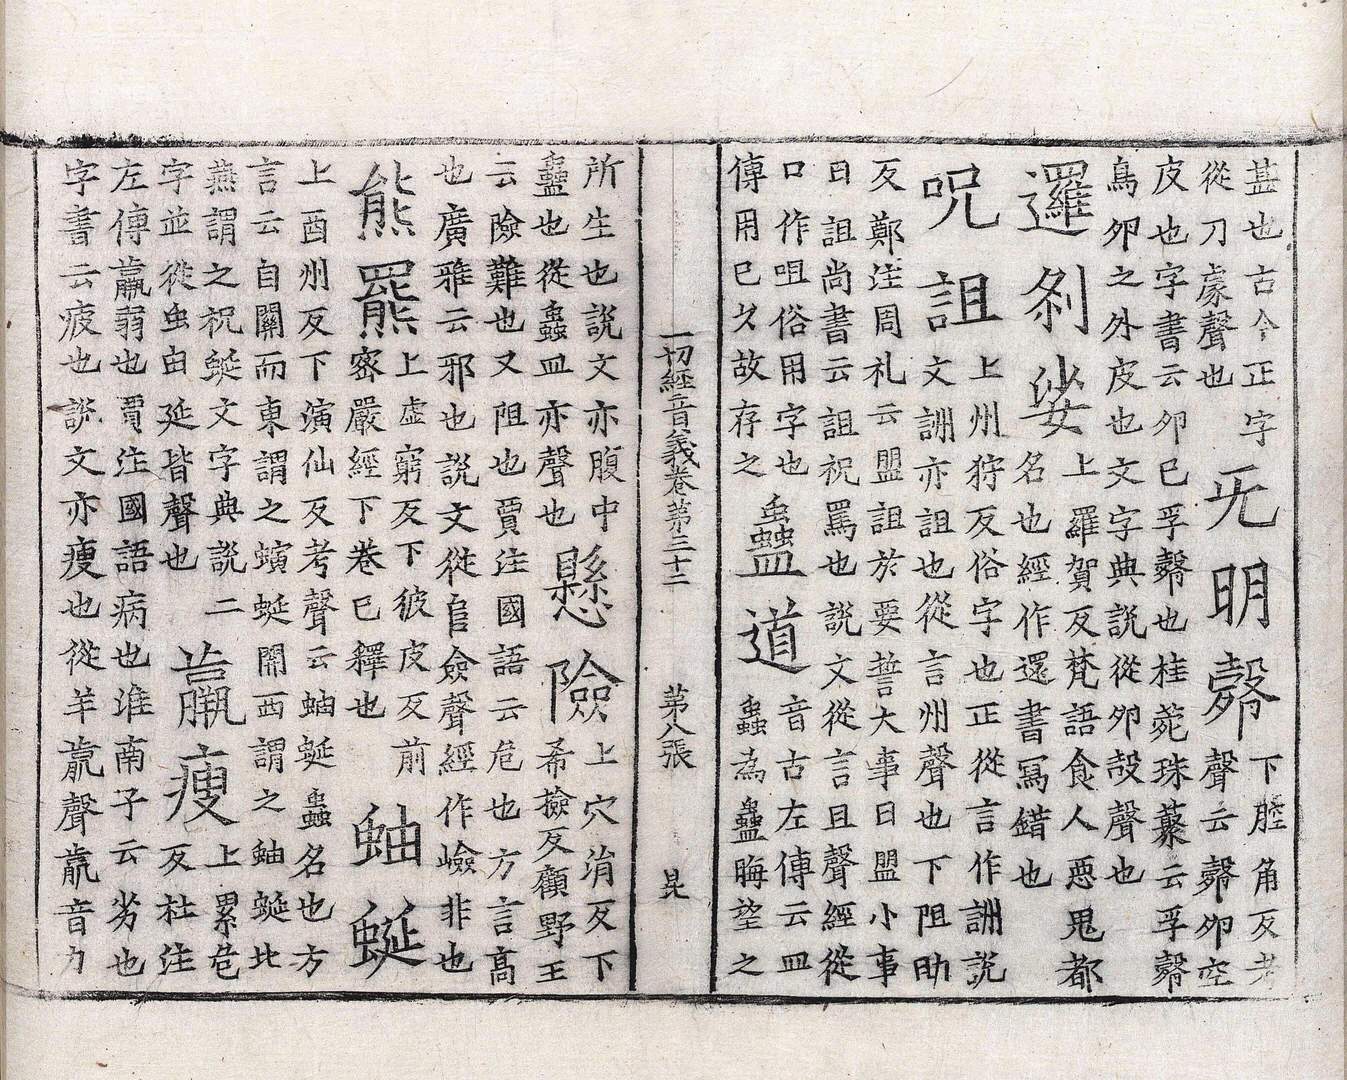 甚也古今正字
從刀豦聲也
无明㲉
下腔角反考
聲云㲉卵空
皮也字書云卵已孚㲉也桂苑珠藂云孚㲉
鳥卵之外皮也文字典說從卵殼聲也
邏剎娑
上羅賀反梵語食人惡鬼都
名也經作還書寫錯也
呪詛
上州狩反俗字也正從言作詶說
文詶亦詛也從言州聲也下阻助
反鄭注周礼云盟詛於要誓大事曰盟小事
曰詛尚書云詛祝罵也說文從言且聲經從
口作咀俗用字也
傳用已久故存之
蠱道
音古左傳云皿
蟲為蠱晦望之
一切經音義卷第三十二 第八張 㫤
所生也說文亦腹中
蠱也從蟲皿亦聲也
懸險
上穴涓反下
希撿反顧野王
云險難也又阻也賈注國語云危也方言高
也廣雅云邪也說文從𨸏僉聲經作嶮非也
熊羆
上虛窮反下彼皮反前
密嚴經下卷已釋也
蚰蜒
上酉州反下演仙反考聲云蚰蜒蟲名也方
言云自關而東謂之螾蜒關西謂之蚰蜒北
燕謂之祝蜒文字典說二
字並從虫由延皆聲也
羸瘦
上累危
反杜注
左傳羸弱也賈注國語病也淮南子云劣也
字書云疲也說文亦瘦也從羊𣎆聲𣎆音力